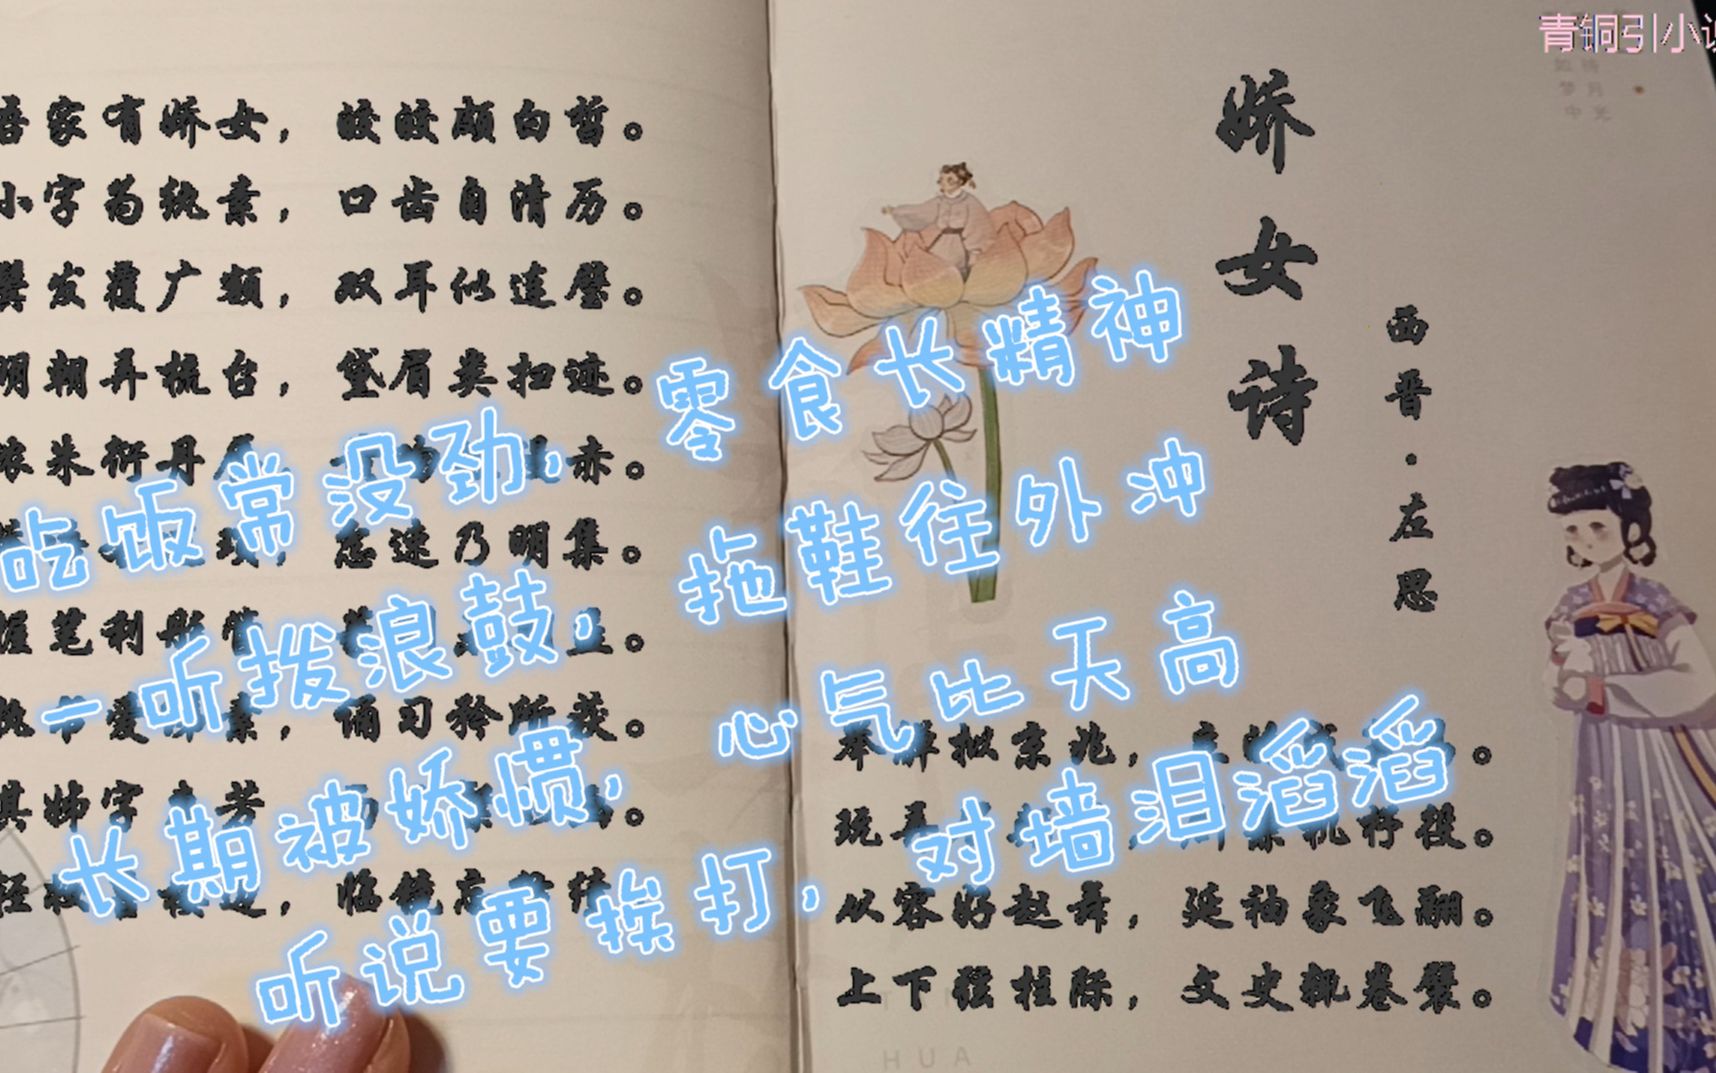 青铜引小
吾家有娇女，皎皎颇白皙。
小字为纨素，口齿自清历。
鬓发覆广额，双耳似连璧。
明朝弄梳台，黛眉类扫迹。
浓朱衍丹 赤。
忿速乃明集。
握笔利彤管，
执 爱 素，诵习矜所获。
其姊字 芳
轻妆 边，临镜
娇女诗
西晋·左思
举觯拟京兆，
玩弄 机杼役。
从容好赵舞，延袖象飞翮。
上下弦柱际，文史辄卷襞。
吃饭常没劲，零食长精神
一听拨浪鼓，拖鞋往外冲
长期被娇惯，心气比天高
听说要挨打，对墙泪滔滔
HUA